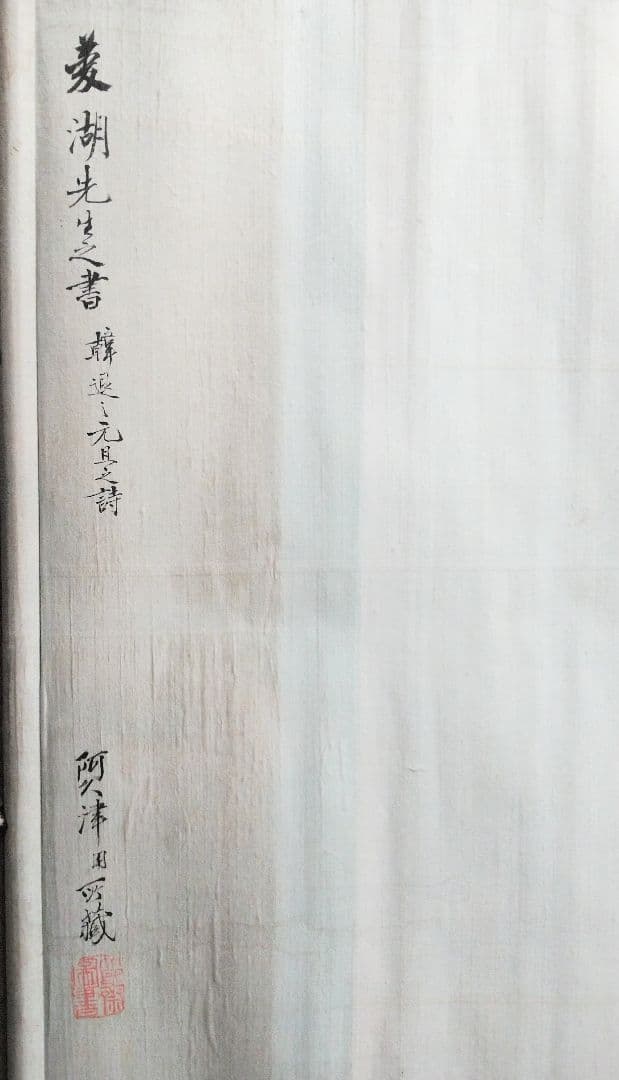 菱湖先生之書
韓退之元旦之詩
阿久津用所蔵